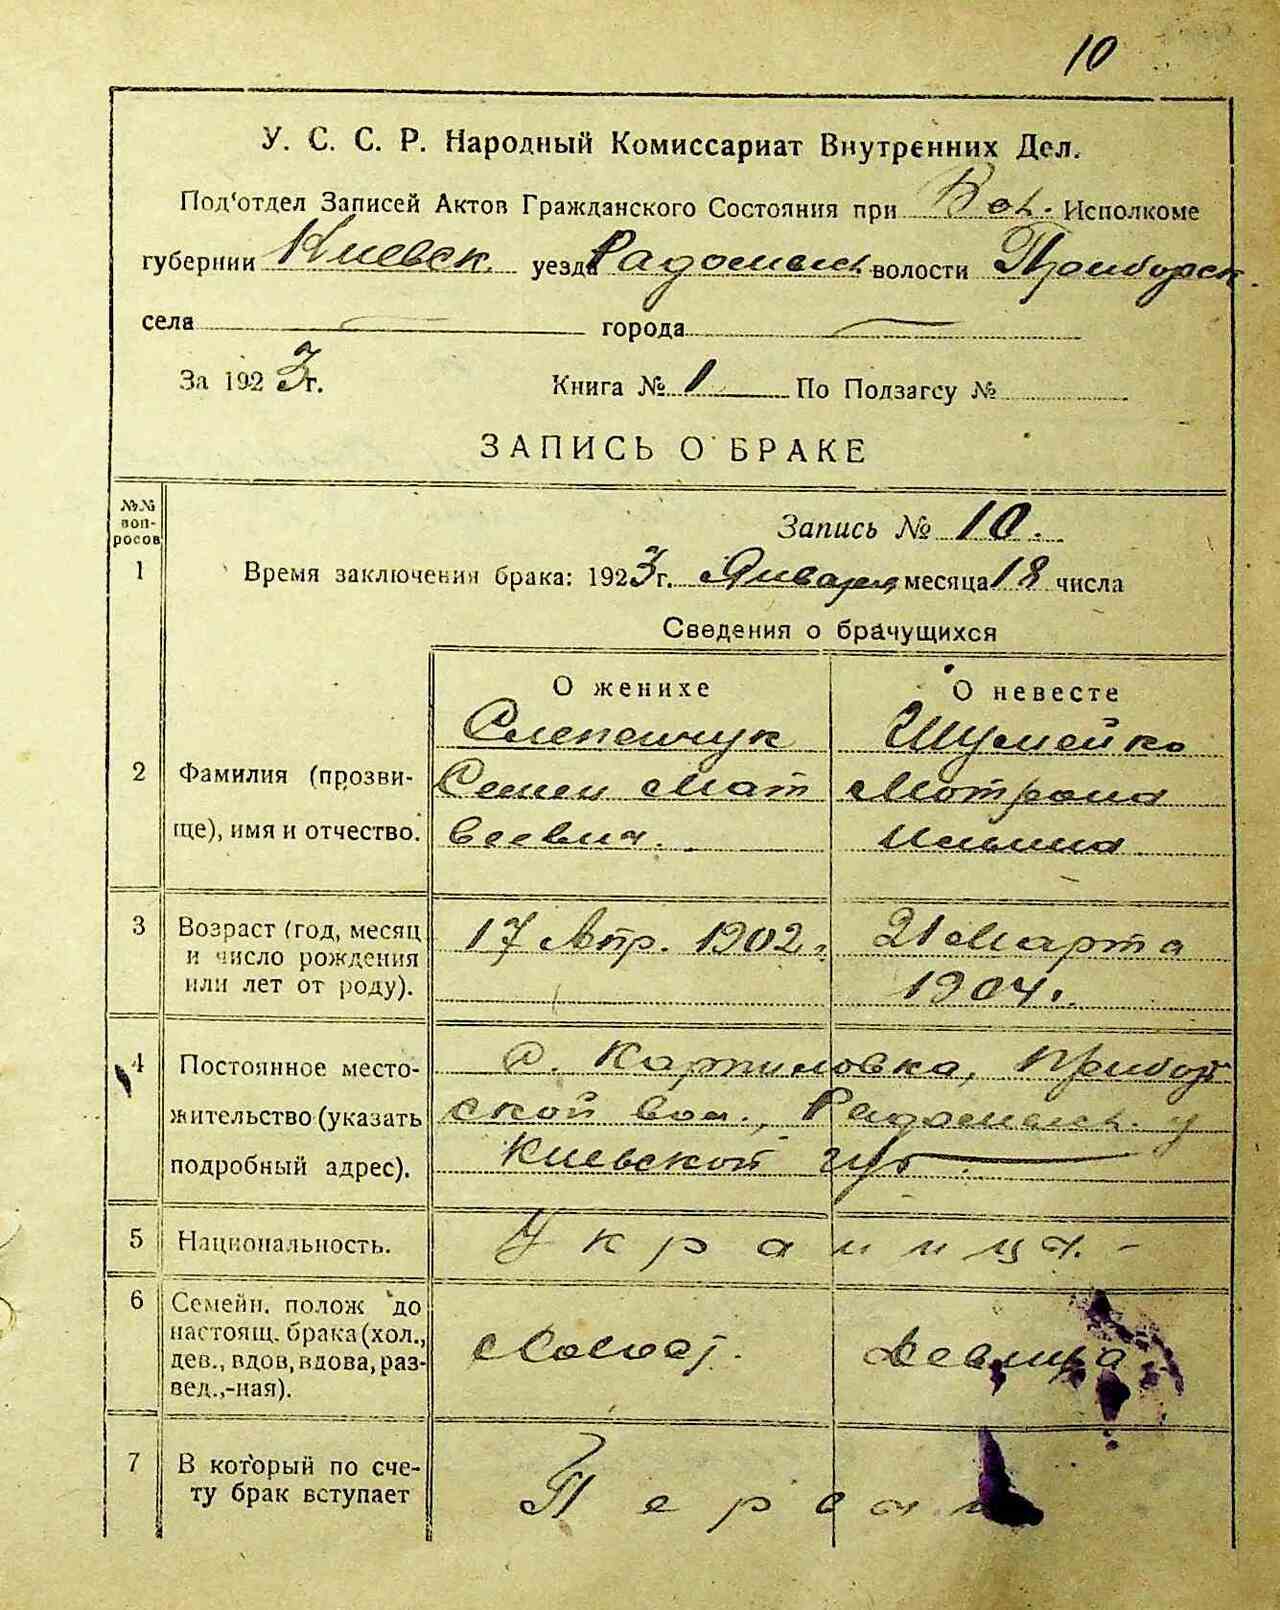 10
У. С. С. Р. Народный Комиссариат Внутренних Дел.
Под'отдел Записей Актов Гражданского Состояния при Вол. Исполкоме
губернии Киевск. уезда Радомысл. волости Приборск.
села города
За 1923 г. Книга № 1 По Подзагсу №
ЗАПИСЬ О БРАКЕ
№№ вопросов
Запись № 10.
1 Время заключения брака: 1923 г. Января месяца 18 числа
Сведения о брачущихся
О женихе О невесте
Слепенчук Шумейко
2 Фамилия (прозви- Семен Мат Мотрона
ще), имя и отчество. веевич. Ильина
3 Возраст (год, месяц 17 Апр. 1902 г. 21 Марта
и число рождения
или лет от роду). 1904.
4 Постоянное место- с. Картиловка, Прибор
жительство (указать ской вол., Радомысл. у
подробный адрес). Киевской губ
5 Национальность. Украинцы. -
6 Семейн. полож до
настоящ. брака (хол., Холост. Девица
дев., вдов, вдова, раз-
вед.,-ная).
7 В который по сче-
ту брак вступает